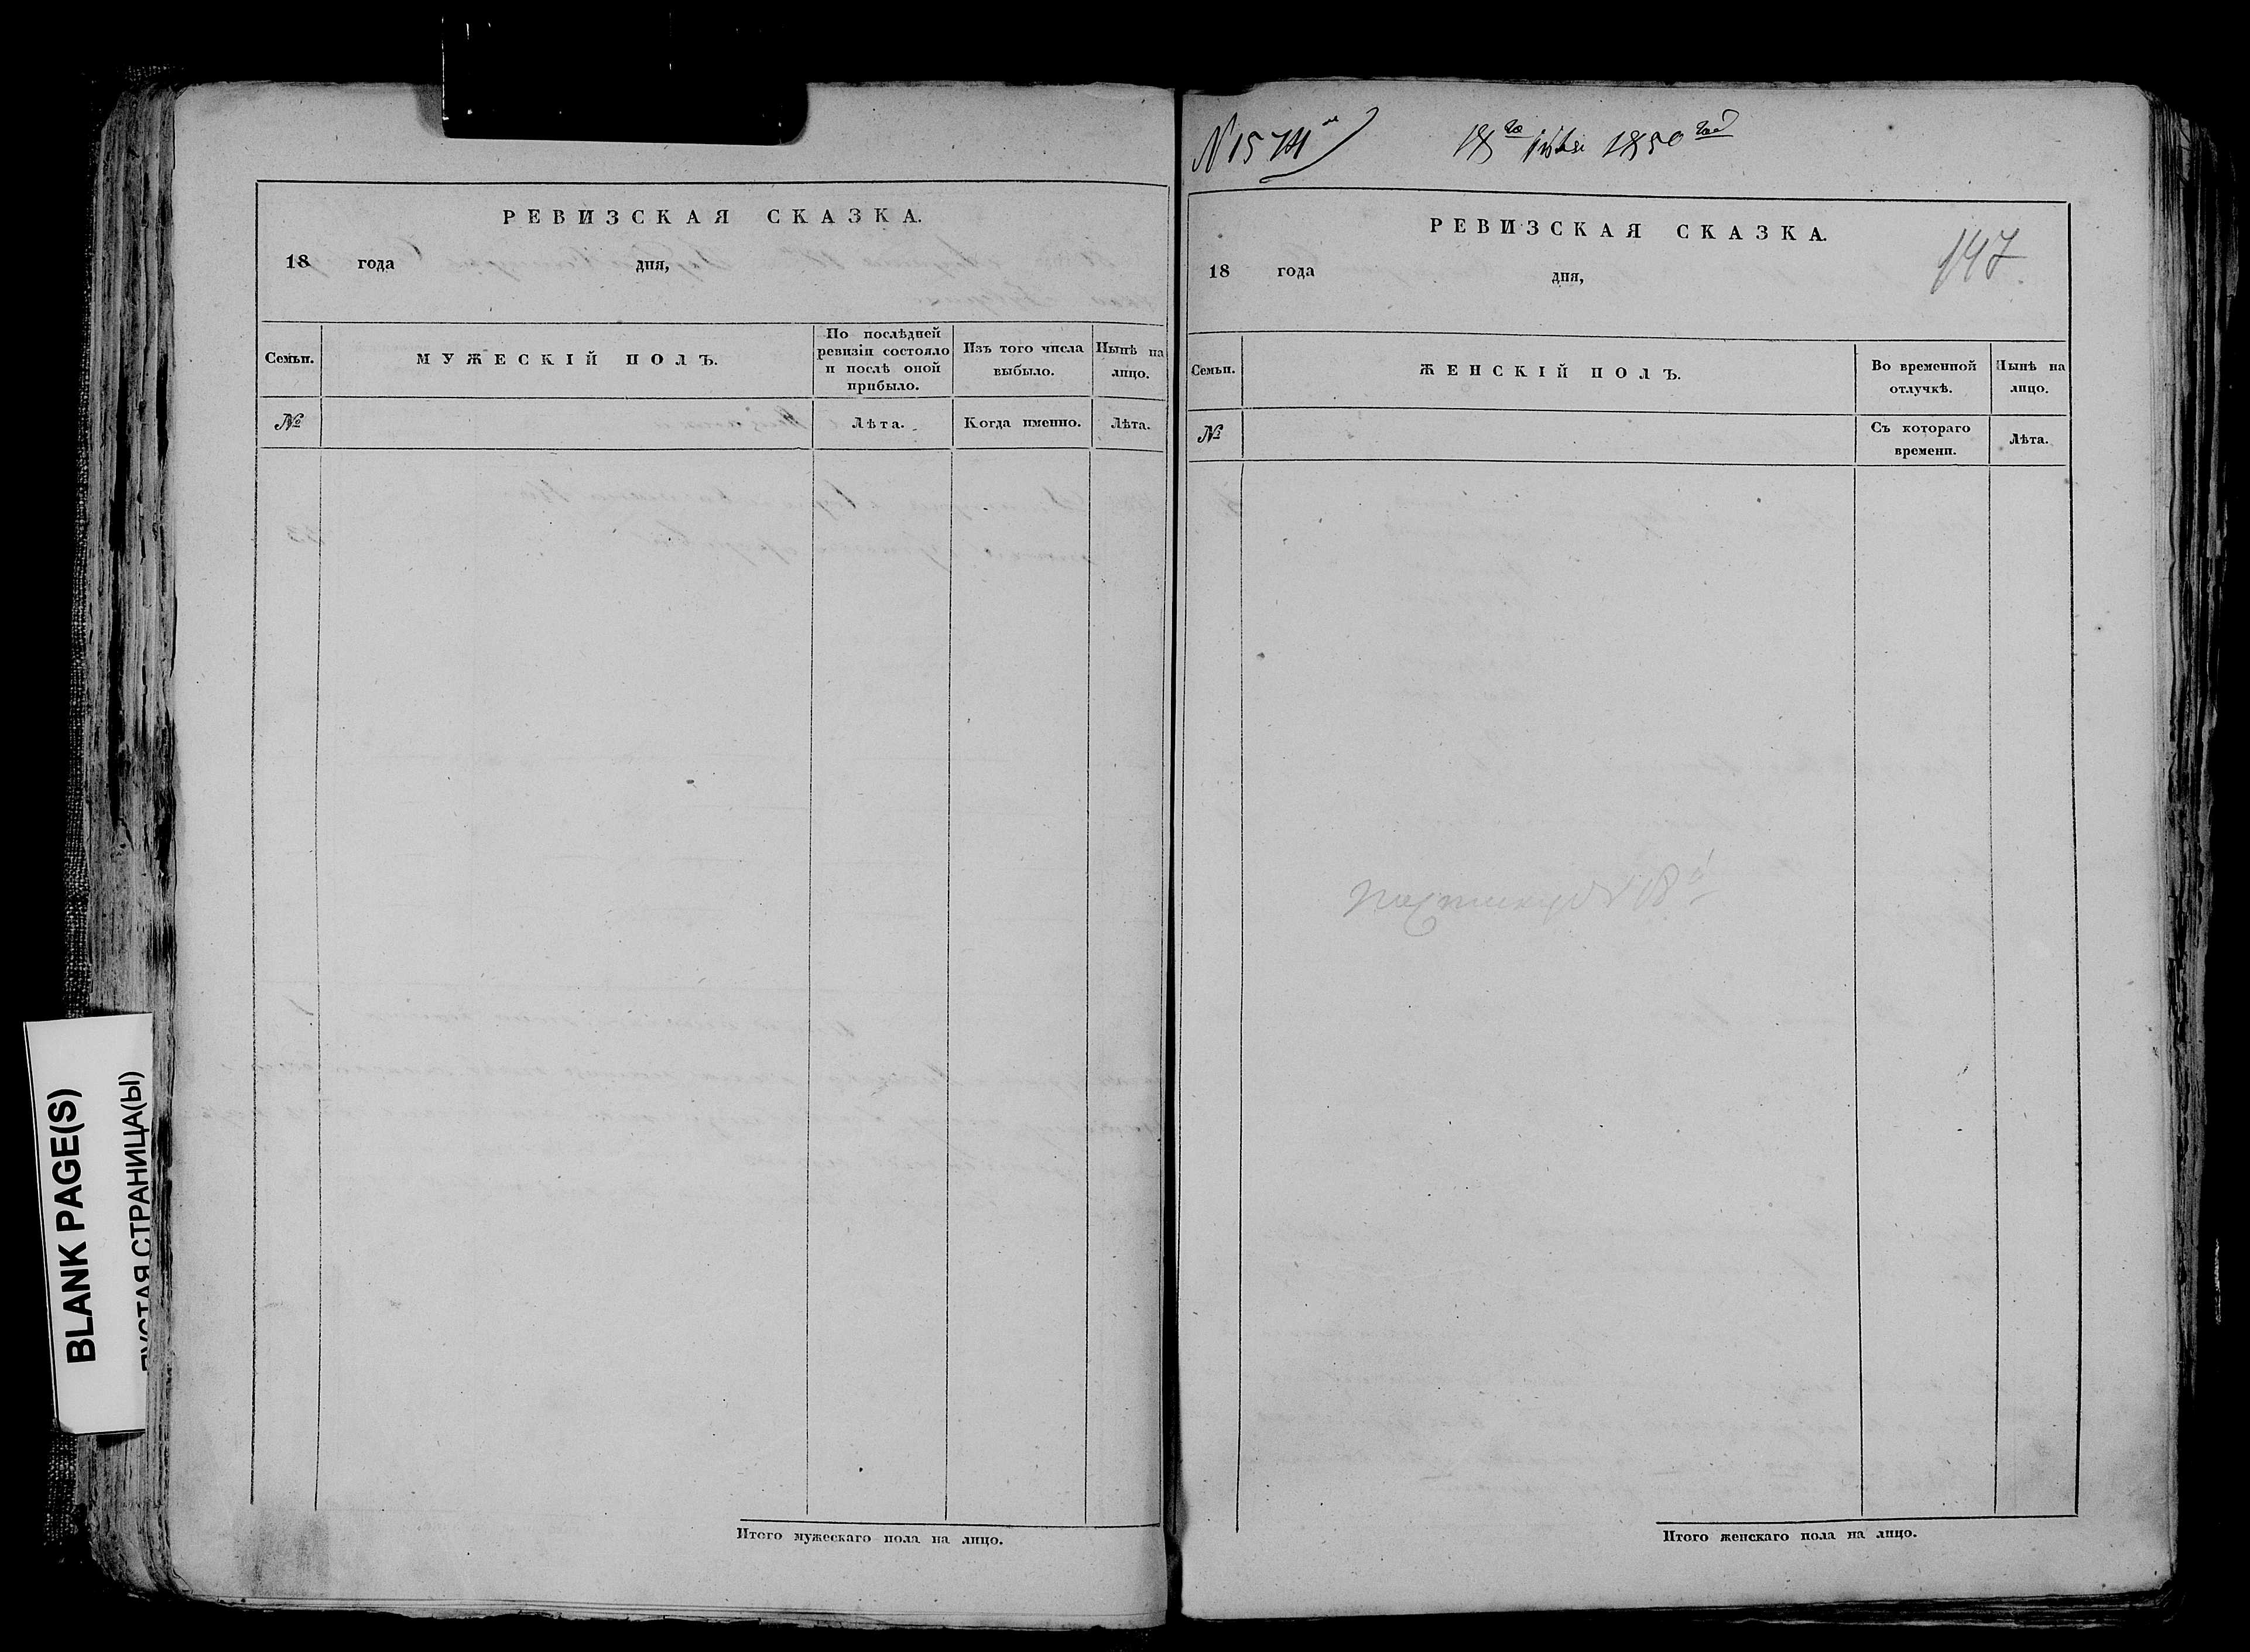 РЕВИЗСКАЯ СКАЗКА.
18 года дня,
Семьи. МУЖЕСКІЙ ПОЛЪ. По послѣдней ревизіи состояло и послѣ оной прибыло. Изъ того числа выбыло. Нынѣ на лицо.
№ Лѣта. Когда именно. Лѣта.
Итого мужескаго пола на лицо.
BLANK PAGE(S)
ПУСТАЯ СТРАНИЦА(Ы)
18 1850
РЕВИЗСКАЯ СКАЗКА.
147
18 года дня,
Семьи. ЖЕНСКІЙ ПОЛЪ. Во временной отлучкѣ. Нынѣ на лицо.
№ Съ котораго времени. Лѣта.
Итого женскаго пола на лицо.